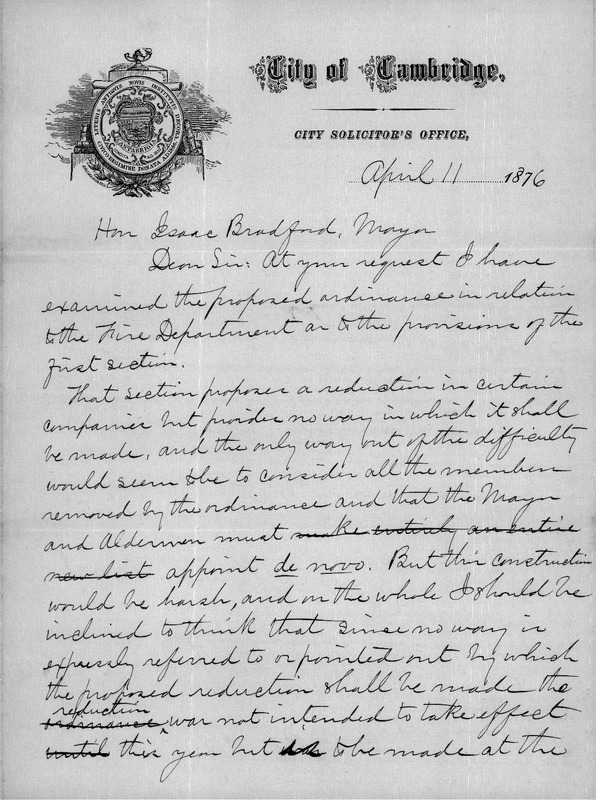 City of Cambridge,
CITY SOLICITOR'S OFFICE,
LITERIS ANTIQUIS NOVIS INSTITUTIS DECORA
CIVICO REGIMINE DONATA A.D. 1846
CANTABRIGIA
April 11 1876
Hon Isaac Bradford, Mayor
Dear Sir: At your request I have
examined the proposed ordinance in relation
to the Fire Department as to the provisions of the
first section.
That section proposes a reduction in certain
companies but provides no way in which it shall
be made, and the only way out of the difficulty
would seem to be to consider all the members
removed by the ordinance and that the Mayor
and Aldermen must make entirely an entire
new list appoint de novo. But this construction
would be harsh, and on the whole I should be
inclined to think that since no way is
expressly referred to or pointed out by which
the proposed reduction shall be made the
reduction
ordinance was not intended to take effect
until this year but to be made at the